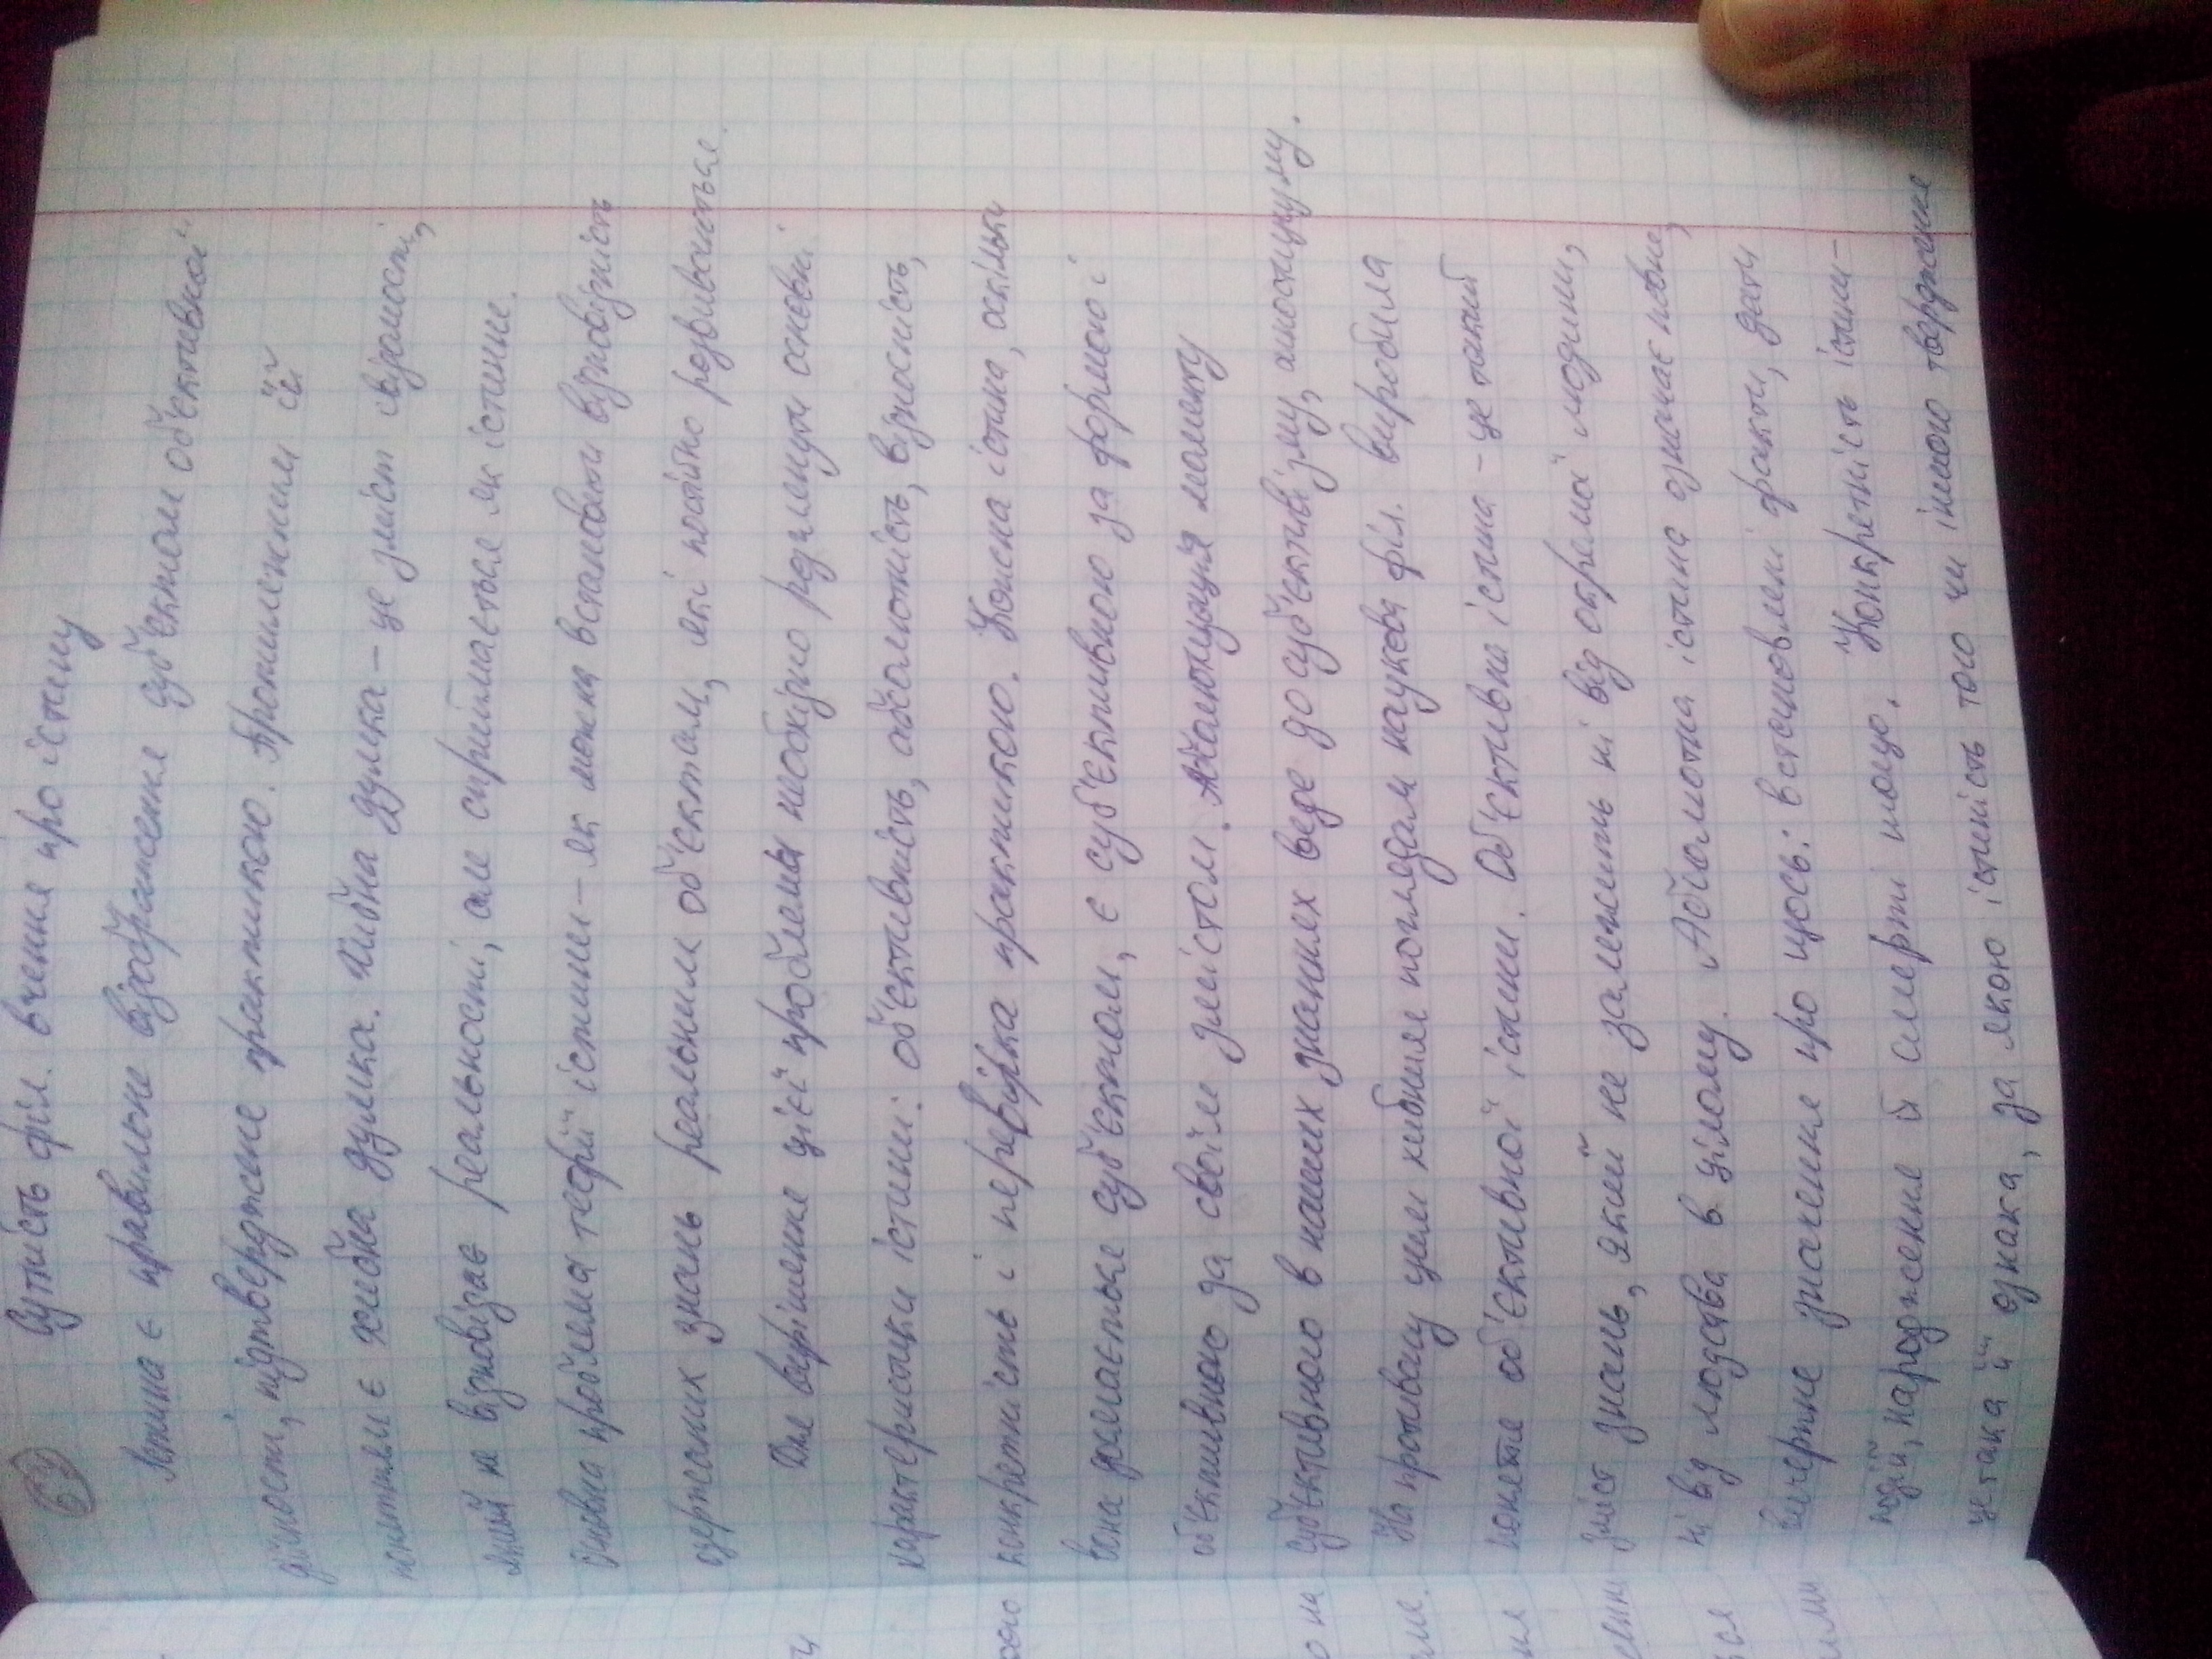 67 Сутність філ. вчення про істину
Істина є правильне відображення суб'єктом об'єктивної
дійсності, підтверджене практикою. Протилежним їй
поняттям є хибна думка. Хибна думка – це зміст свідомості,
який не відповідає реальності, але сприймається як істинне.
Основна проблема теорії істини – як можна встановити відповідність
одержаних знань реальним об'єктам, які постійно розвиваються.
Для вирішення цієї проблеми необхідно розглянути основні
характеристики істини: об'єктивність, абсолютність, відносність,
конкретність і перевірка практикою. Кожна істина, оскільки
вона досягається суб'єктом, є суб'єктивною за формою і
об'єктивною за своїм змістом. Абсолютизація моменту
суб'єктивного в наших знаннях веде до суб'єктивізму, агностицизму.
На противагу цим хибним поглядам наукова філ. виробила
поняття об'єктивної істини. Об'єктивна істина – це такий
зміст знань, який не залежить ні від окремої людини,
ні від людства в цілому. Абсолютна істина означає повне,
вичерпне значення про щось: встановлені факти, дати
подій, народження й смерті тощо. Конкретність істини –
це така її ознака, за якою істиність того чи іншого твердження